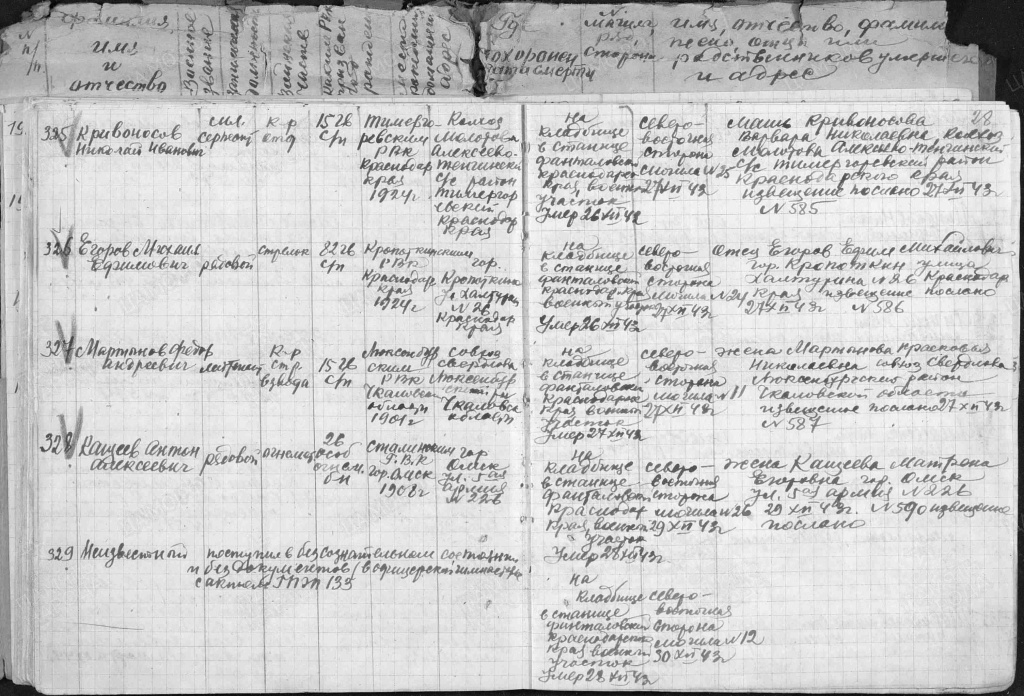 фамилия,
имя
и
отчество
N
п/п
Военное звание
занимаем. должность
часть
адрес
похоронен
смерти
N могила,
Сторона
имя, отчество, фамилия
отца или
родственников умершего
и адрес
28
325 Кривоносов
Николай Иванович
мл.
сержант
к-р
отд
1526
с/п
Тимерго-
евским
РВК
Краснодар
края
1924г
Колхоз
Молотова
Алексеево-
Тенгинский
с/с район
Тимергор
евский
Краснодар
края
на
кладбище
в станице
Фанталовской
Краснодарск
края военный
участок
Умер 26 XII 43г
северо-
восточная
сторона
могила N 25
27 XII 43г
Мать Кривоносова
Варвара Николаевна колхоз
Молотова Алексеево-Тенгинский
с/с Тимергоевский район
Краснодарского края
извещение послано 27 XII 43г
N 585
326 Егоров Михаил
Ефимович
рядовой
стрелок
8226
с/п
Кропоткинским
РВК
Краснодар
края
1924г
гор.
Кропоткин
ул. Халтурина
N 26
Краснодар
края
на
кладбище
в станице
фанталовской
Краснодар. края
военный участок
Умер 26 XII 43г
северо-
восточная
сторона
могила N 24
27 XII 43г
Отец Егоров Ефим Михайлович
гор. Кропоткин улица
Халтурина N 26 Краснодар
края извещение послано
27 XII 43г N 586
327 Мартынов Федор
Андреевич
лейтенант
к-р
стр.
взвода
1526
с/п
Люксембург
ским
РВК
Чкаловск
области
1901г
совхоз
Свердлова
Люксембур
ский р-н
Чкаловск
области
на
кладбище
в станице
фанталовской
Краснодарск
края военный
участок
Умер 27 XII 43г
северо-
восточная
сторона
могила N 11
27 XII 43г
жена Мартынова
Николаевна совхоз Свердлова
Люксембургского район
Чкаловской области
извещение послано 27 XII 43г
N 587
328 Кащеев Антон
Алексеевич
рядовой
огнемет
26
особ
огнем.
б-н
Сталинским
Г.В.К
гор. Омск
1908г
гор
Омск
ул. 5ая
армия
N 226
на
кладбище
в станице
фанталовской
Краснодар
края военный
участок
Умер 28 XII 43г
северо-
восточная
сторона
могила N 26
29 XII 43г
жена Кащеева Матрона
Егоровна гор. Омск
ул. 5ая армия N 226
29 XII 43г. N 590 извещение
послано
329 Неизвестный поступил в бессознательном состоянии
и без документов (в офицерской гимнастерке
с актом ППЭП 135
на
кладбище
в станице
фанталовской
Краснодарского
края военный
участок
Умер 28 XII 43г
северо-
восточная
сторона
могила N 12
30 XII 43г